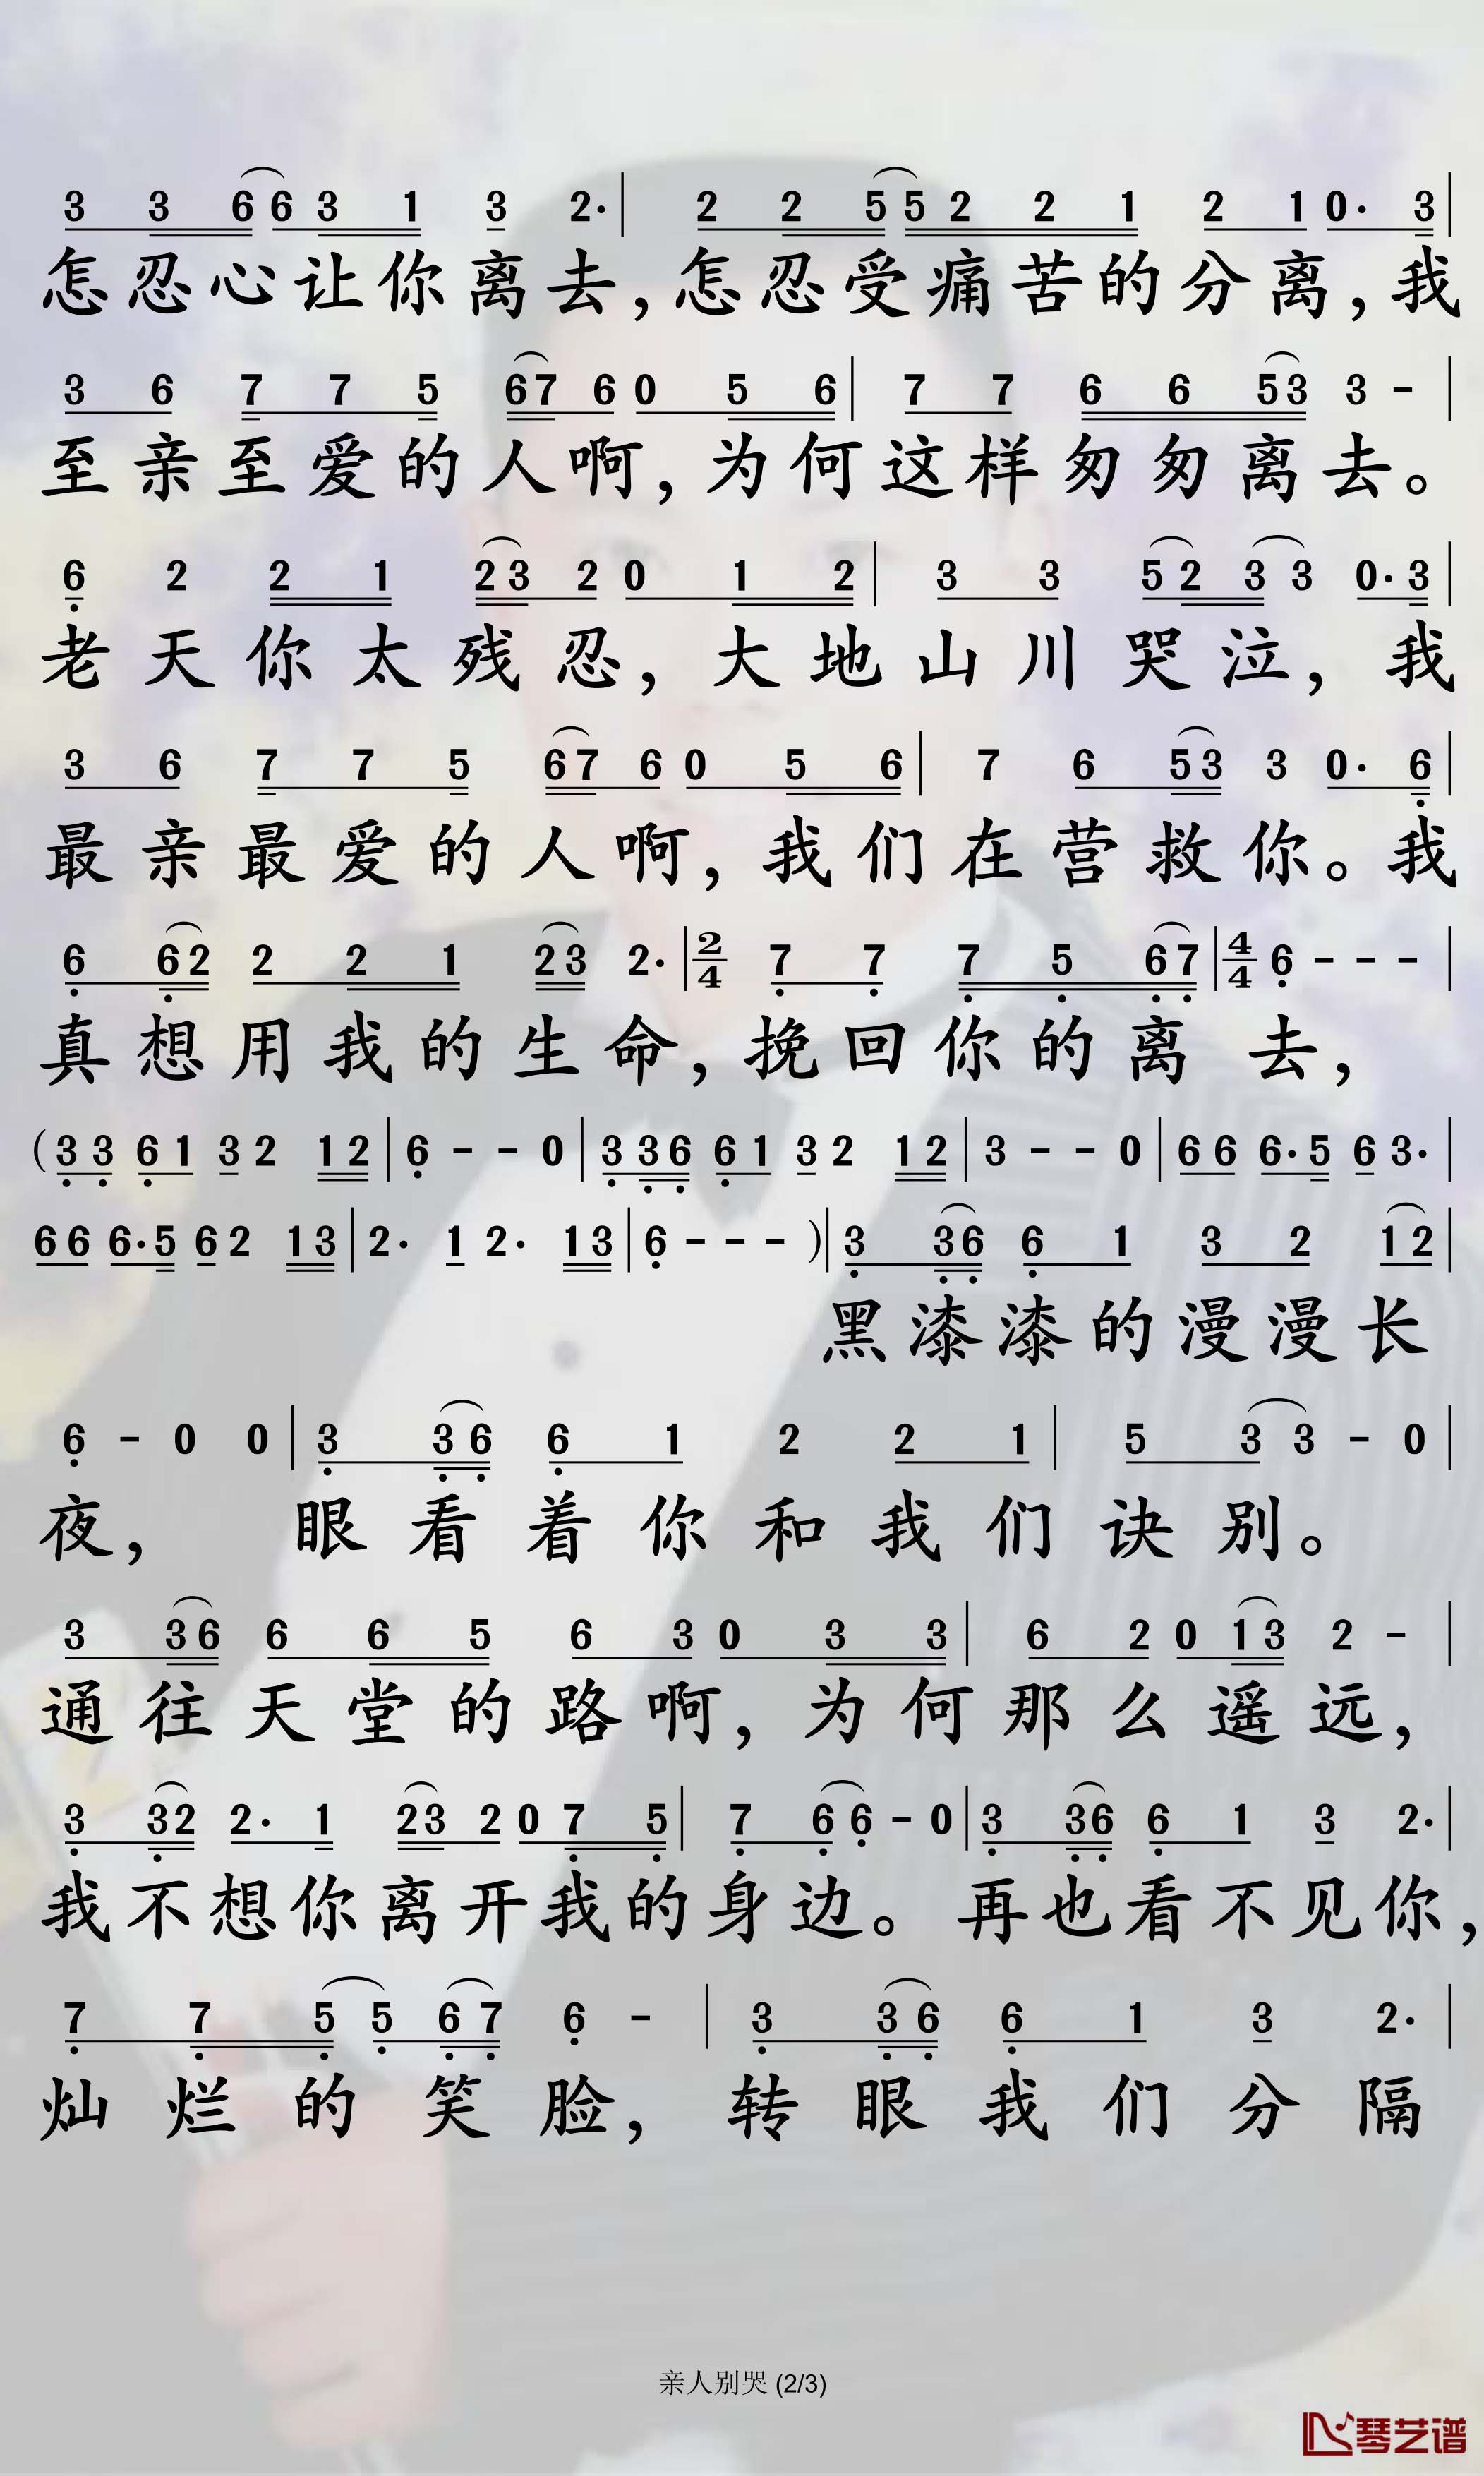 3 3 6 6 3 1 3 2· | 2 2 5 5 2 2 1 2 1 0· 3 |
怎忍心让你离去,怎忍受痛苦的分离,我
3 6 7 7 5 6 7 6 0 5 6 | 7 7 6 6 5 3 3 - |
至亲至爱的人啊,为何这样匆匆离去。
6 2 2 1 2 3 2 0 1 2 | 3 3 5 2 3 3 0· 3 |
老天你太残忍,大地山川哭泣,我
3 6 7 7 5 6 7 6 0 5 6 | 7 6 5 3 3 0· 6 |
最亲最爱的人啊,我们在营救你。我
6 6 2 2 2 1 2 3 2· | 2/4 7 7 7 5 6 7 | 4/4 6 - - - |
真想用我的生命,挽回你的离去,
( 3 3 6 1 3 2 1 2 | 6 - - 0 | 3 3 6 6 1 3 2 1 2 | 3 - - 0 | 6 6 6· 5 6 3· |
6 6 6· 5 6 2 1 3 | 2· 1 2· 1 3 | 6 - - - ) | 3 3 6 6 1 3 2 1 2 |
黑漆漆的漫漫长
6 - 0 0 | 3 3 6 6 1 2 2 1 | 5 3 3 - 0 |
夜,眼看着你和我们诀别。
3 3 6 6 6 5 6 3 0 3 3 | 6 2 0 1 3 2 - |
通往天堂的路啊,为何那么遥远,
3 3 2 2· 1 2 3 2 0 7 5 | 7 6 6 - 0 | 3 3 6 6 1 3 2· |
我不想你离开我的身边。再也看不见你,
7 7 5 5 6 7 6 - | 3 3 6 6 1 3 2· |
灿烂的笑脸,转眼我们分隔
亲人别哭 (2/3)
琴艺谱